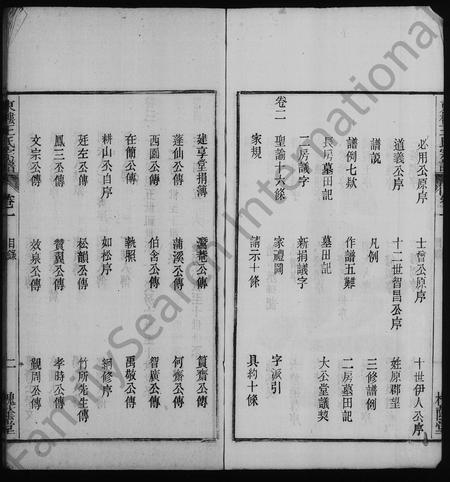 必用公原序　士會公原序　十世伊人公序
道義公序　十二世智昌公序　姓原郡望
譜說　凡例　三修譜例
譜例七欵　作譜五難　二房墓田記
長房墓田記　墓田記　大公堂議契
二房議字　新捐議字　字派引
卷二　聖諭十六條　家禮圖
家規　請示十條　具約十條
建享堂捐簿　篔齋公傳
蓬仙公傳　蒲溪公傳　何齋公傳
西園公傳　伯含公傳　智廣公傳
在蘭公傳　執照　禹敬公傳
耕山公自序　如松序　綱修序
廷左公傳　松韻公傳　竹所先生傳
鳳三公傳　贊襄公傳　孝時公傳
文宗公傳　效泉公傳　觀周公傳
東樓王氏宗譜　卷一　目錄　二　槐蔭堂
FamilySearch International